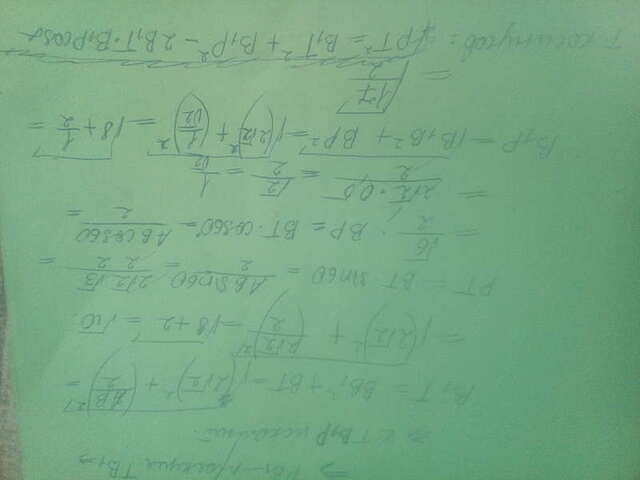 ⇒ PB₁ – проекция TB₁ ⇒
⇒ ∠TB₁P искомый.
B₁T = √(BB₁² + BT²) = √((2√2)² + (AB/2)²) =
= √((2√2)² + (2√2/2)²) = √(8+2) = √10
PT = BT · sin60 = AB sin60/2 = 2√2/2 · √3/2 =
= √6/2. BP = BT · cos60° = AB cos60/2 =
= 2√2 · 0,5/2 = √2/2 = 1/√2
B₁P = √(B₁B² + BP²) = √((2√2)² + (1/√2)²) = √(8 + 1/2) =
= √(17/2)
Т косинусов: PT² = B₁T² + B₁P² − 2B₁T · B₁P cosα